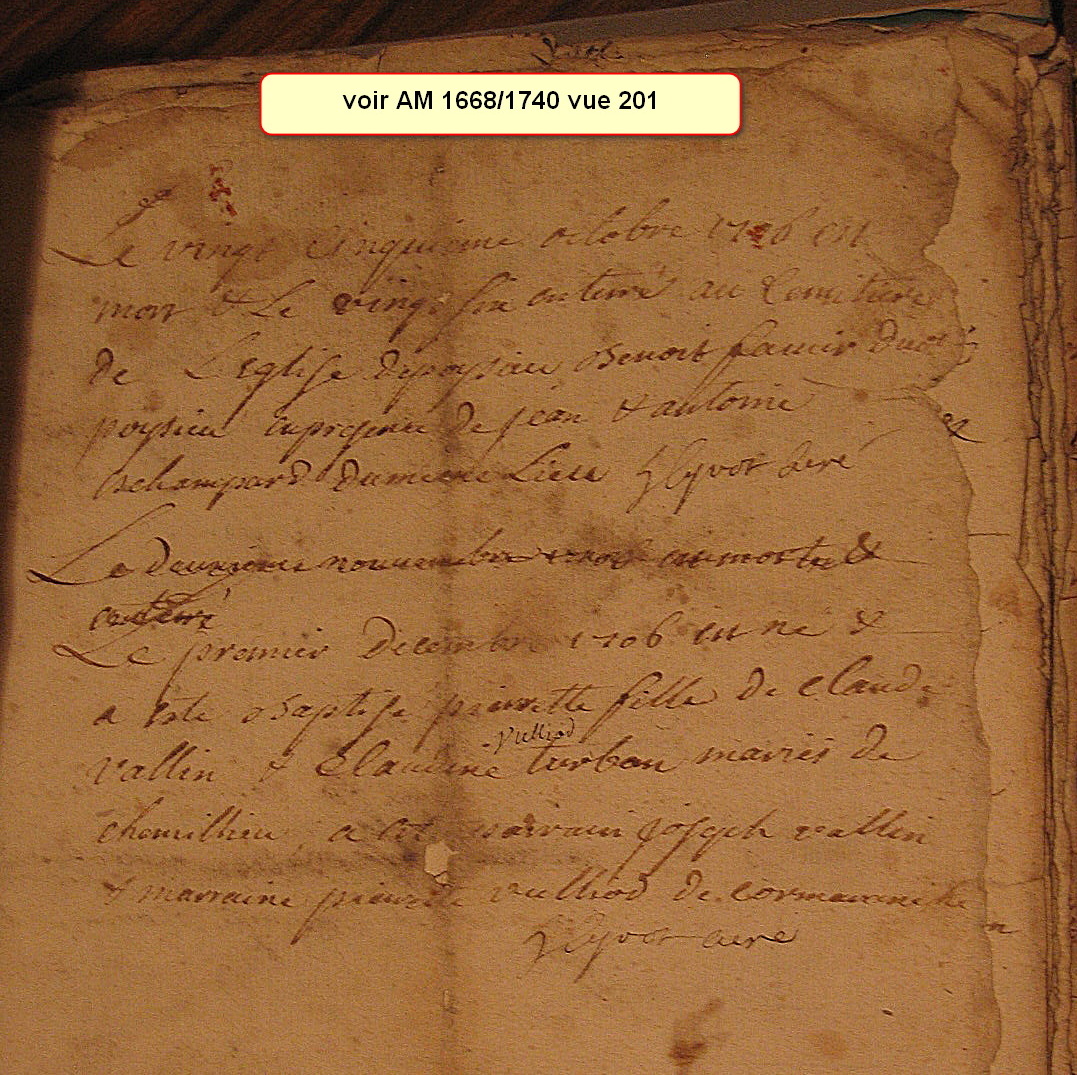 voir AM 1668/1740 vue 201
Le vingt cinquieme octobre 1706 est
mort & Le vingt six enterré au Cemitiere
de L'eglise de poysieu Benoit
poysieu en presence de jean & antoine
du meme Lieu curé
Le deuxieme nouvembre est morte &
enterré
Le premier Decembre 1706 est né &
a este Baptise pierrette fille de Claude
Vulliod
vallin & Claudine turbon mariés de
chemillieu a parrain joseph vallin
& marraine pierrette vulliod de
curé